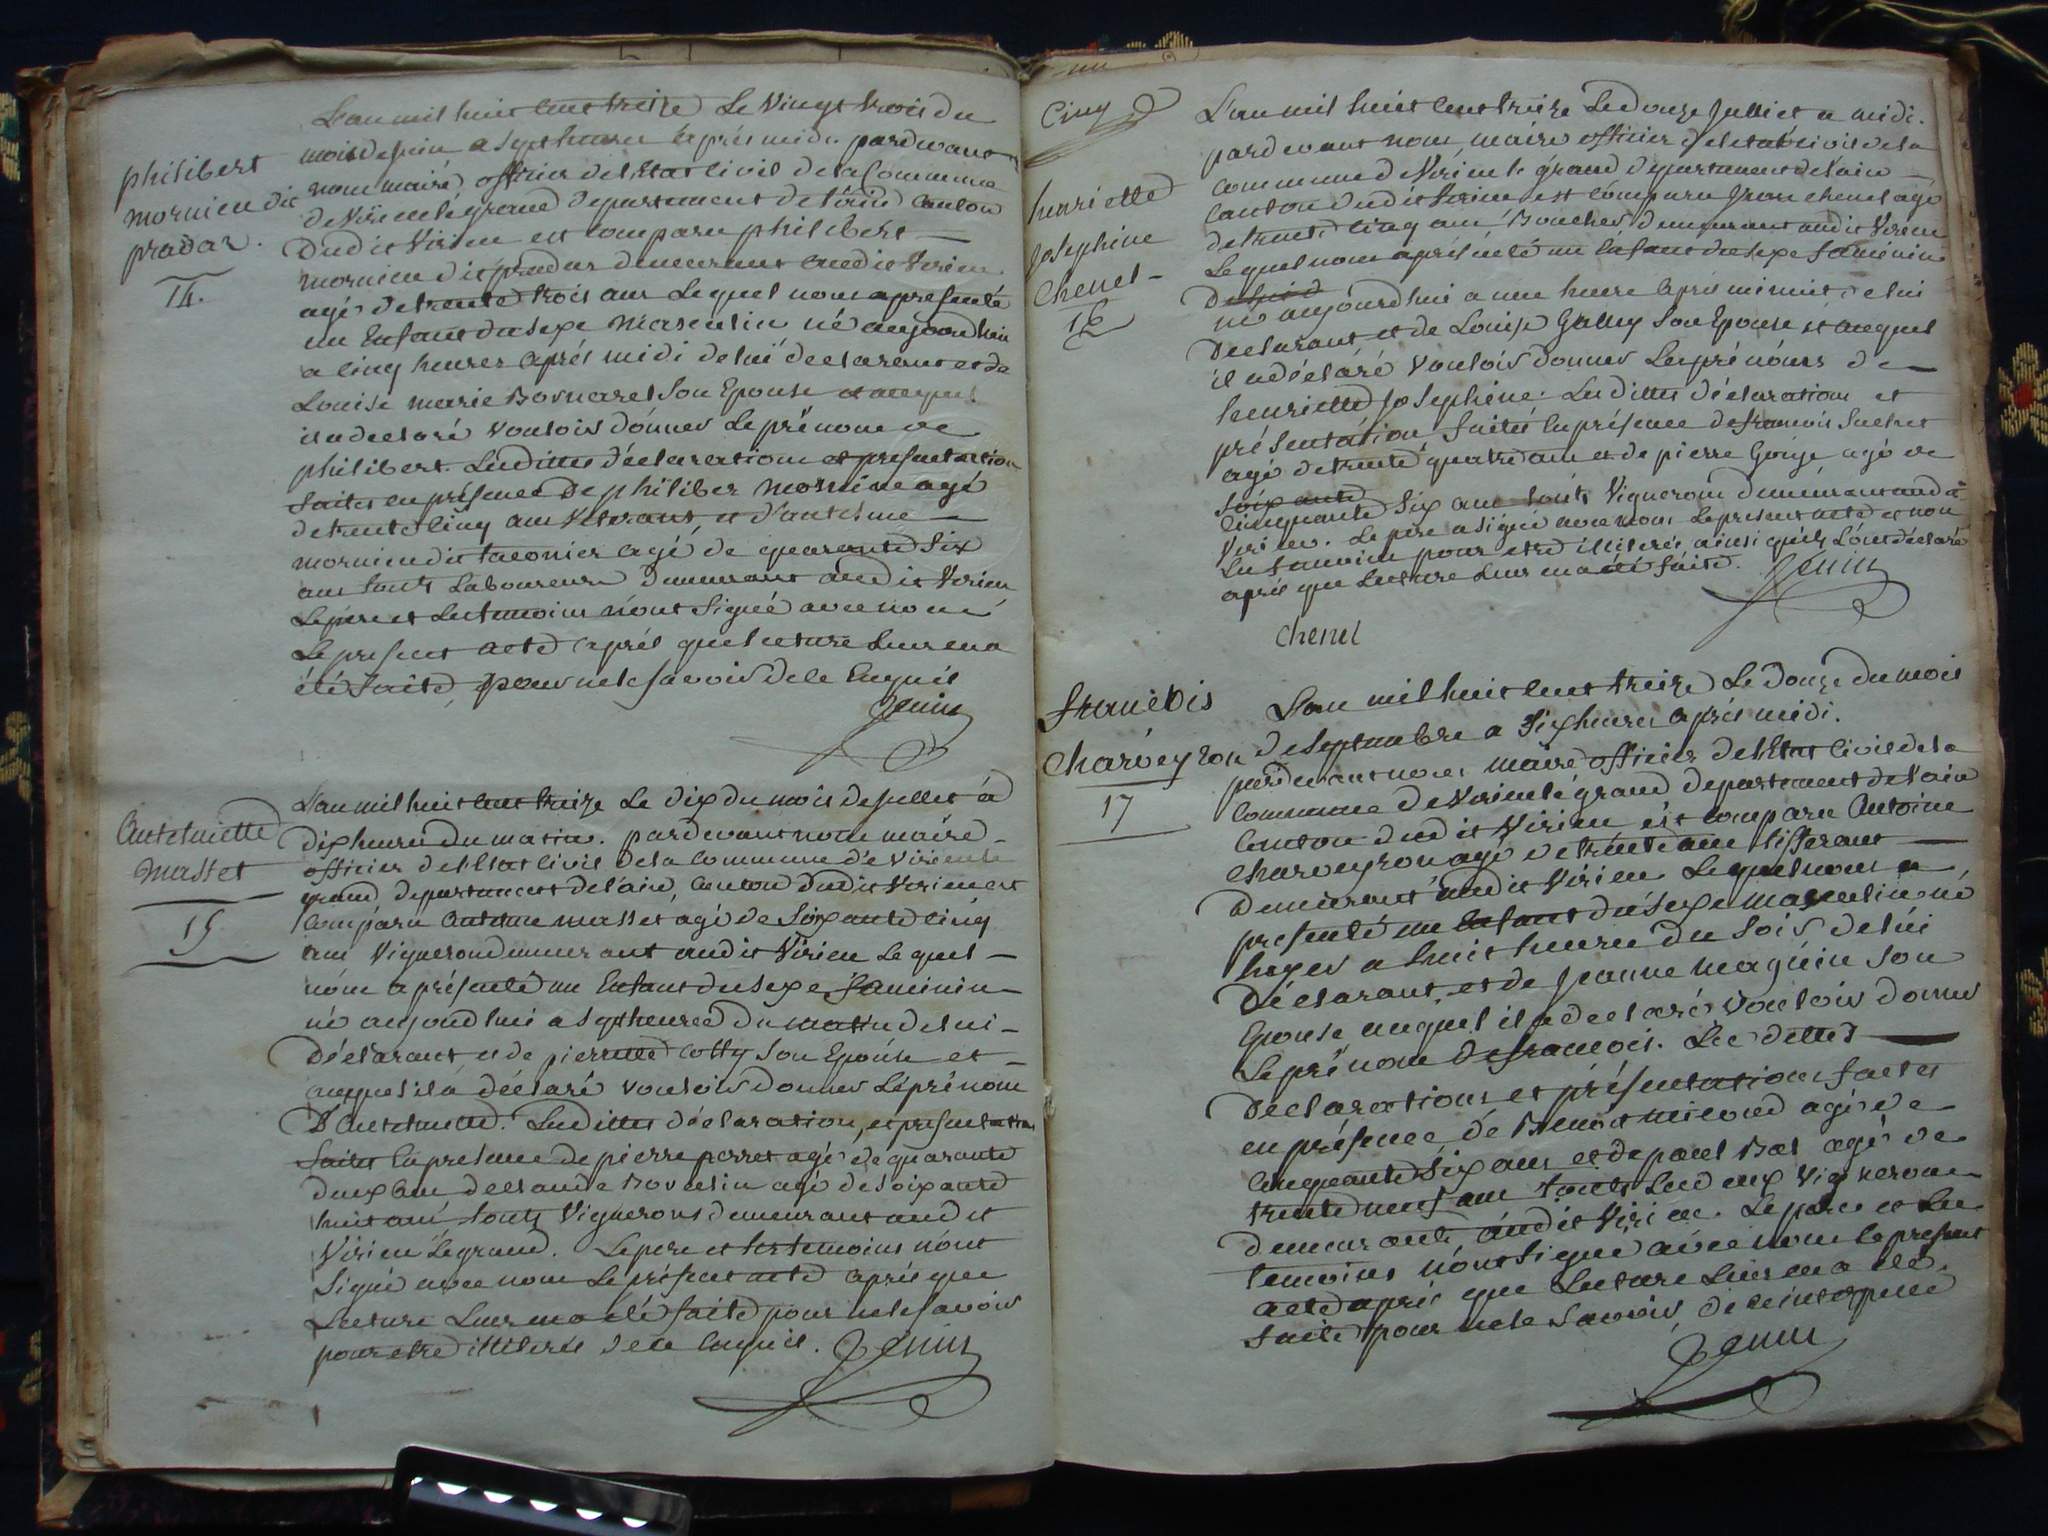 philibert
mornieu dit
pradar.
14.
L'an mil huit cent treize Le Vingt trois du
mois de juin a Sept heures après midi pardevant
nous maire, officier de l'Etat civil de la Commune
de Virieu le grand Departement de l'ain Canton
Dudit Virieu est comparu philibert
mornieu dit pradar demeurant audit Virieu
agé de trente trois ans Lequel nous a presenté
un Enfant du Sexe Masculin né aujourdhui
a cinq heures après midi de lui declarant et de
Louise marie Bornarel Son Epouse et auquel
il a declaré Vouloir donner Le prénom de
philibert. Lesdittes déclaration et presentation
faites en présence De philiber mornieu agé
de trente cinq ans Veterant, et d'antelme
mornieu dit taconier agé de quarante Six
ans touts Laboureurs Demeurant audit Virieu
Le père et Les temoins n'ont Signé avec nous
Le present acte après que lecture Leur en a
été faite, pour ne le savoir de ce Enquis
Jenin
Antelmette
Masset
15
L'an mil huit cent treize Le dix du mois de Juillet à
Dix heures Du matin. pardevant nous maire
officier de l'Etat civil de la Commune de Virieu le
grand, departement de l'ain, Canton Dudit Virieu est
comparu Antelme masset agé de Soixante cinq
ans Vigneron demeurant audit Virieu Lequel
nous a présenté un Enfant du Sexe féminin
né aujourdhui a Sept heures Du matin de lui
Déclarant et de pierrette Cotty Son Epouse et
auquel il a déclaré Vouloir Donner Le prénom
D'Antelmette. Lesdittes déclaration, et presentation
faites En présence de pierre perret agé de quarante
deux ans de Claude Bovelin agé de soixante
huit ans touts Vignerons demeurant audit
Virieu Le grand. Le pere et les temoins n'ont
Signé avec nous Le présent acte après que
Lecture Leur en a été faite pour ne le savoir
pour etre illiterés de ce Enquis. Jenin
Cinq
henriette
Josephine
Chenel
16
L'an mil huit cent treize Le douze Juillet a midi.
pardevant nous, maire officier de l'etat civil de la
commune de Virieu le grand Departement de l'ain
Canton dudit Virieu est comparu Jean chenel agé
de trente cinq ans Boucher, demeurant audit Virieu
Lequel nous a présenté un Enfant du Sexe féminin
né aujourdhui a une heure après minuit, de lui
Declarant et de Louise Gallay Son Epouse et auquel
il a déclaré Vouloir donner Les prénoms de
henriette Josephine. Lesdittes déclarations et
présentation faites En présence de françois Suchet
agé de trente quatre ans et de pierre Gouje agé de
cinquante Six ans touts Vignerons demeurant audit
Virieu. Le pere a signé avec nous Le present acte et non
Les temoins pour etre illiterés ainsi qu'ils L'ont déclaré
après que Lecture Leur en a été faite. Jenin
Chenel
francois
Charveyron
17
L'an mil huit cent treize Le Douze du mois
de Septembre a Six heures après midi.
pardevant nous maire officier de l'Etat civil de la
Commune de Virieu le grand departement de l'ain
Canton dudit Virieu est comparu Antoine
Charveyron agé de trente ans tisserant
Demeurant audit Virieu Lequel nous a
presenté un Enfant du Sexe masculin né
hyer a huit heures Du Soir de lui
Déclarant, et de Jeanne maguin Son
Epouse auquel il a declaré Vouloir donner
Le prénom De francois. Les dittes
Declarations et présentations faites
en présence de Benoit milliond agé de
cinquante Six ans et de paul Bal agé de
trente neuf ans touts Les deux Vignerons
demeurants audit Virieu. Le pere et Les
temoins n'ont Signé avec nous le present
acte après que Lecture Leur en a été
faite pour ne le Savoir, de ce interpellé
Jenin